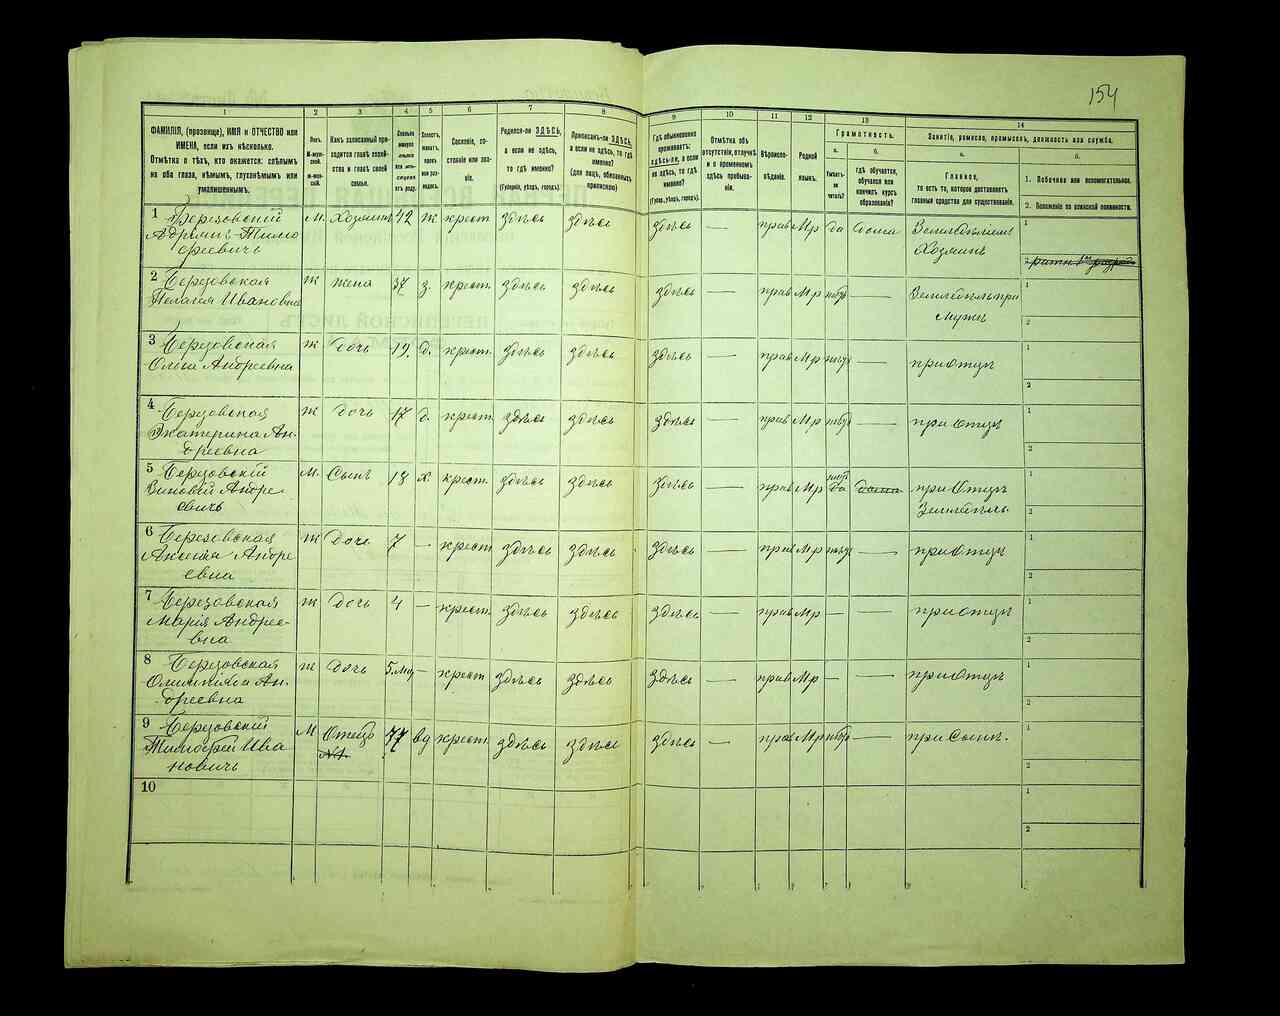 154
1 2 3 4 5 6 7 8 9 10 11 12 13 14
ФАМИЛІЯ, (прозвище), ИМЯ и ОТЧЕСТВО или ИМЕНА, если ихъ нѣсколько.
Отмѣтка о тѣхъ, кто окажется: слѣпымъ на оба глаза, нѣмымъ, глухонѣмымъ или умалишеннымъ.
Полъ.
М-мужской.
Ж-женской.
Какъ записанный приходится главѣ хозяйства и главѣ своей семьи.
Сколько минуло лѣтъ или мѣсяцевъ отъ роду.
Холостъ, женатъ, вдовъ или разведенъ.
Сословіе, состояніе или званіе.
Родился-ли ЗДѢСЬ, а если не здѣсь, то гдѣ именно?
(Губернія, уѣздъ, городъ).
Приписанъ-ли ЗДѢСЬ, а если не здѣсь, то гдѣ именно?
(для лицъ, обязанныхъ припискою)
Гдѣ обыкновенно проживаетъ: здѣсь-ли, а если не здѣсь, то гдѣ именно?
(Губер., уѣздъ, городъ).
Отмѣтка объ отсутствіи, отлучкѣ и о временномъ здѣсь пребываніи.
Вѣроисповѣданіе.
Родной языкъ.
Грамотность.
а.
Умѣетъ-ли читать?
б.
гдѣ обучается, обучался или кончилъ курсъ образованія?
Занятіе, ремесло, промыселъ, должность или служба.
а.
Главное,
то есть то, которое доставляетъ главныя средства для существованія.
б.
1. Побочное или вспомогательное.
2. Положеніе по воинской повинности.
1 Березовскій М. Хозяинъ 42 ж крест здѣсь здѣсь здѣсь — прав Мр да дома Земледѣлецъ 1
Адріянъ Тимо
феевичъ Хозяинъ
2 ратн 1го разряда
2 Березовская ж жена 37 з. крест. здѣсь здѣсь здѣсь — прав Мр нѣтъ — Земледѣль при 1
Пелагія Ивановна мужѣ 2
3 Березовская ж. дочь 19. д. крест. здѣсь здѣсь здѣсь — прав Мр нѣтъ — при Отцѣ 1
Ольга Андреевна 2
4 Березовская ж дочь 17 д. крест. здѣсь здѣсь здѣсь — прав Мр нѣтъ — при Отцѣ 1
Екатерина Ан-
дреевна 2
5 Березовскій М. Сынъ 13 х. крест. здѣсь здѣсь здѣсь — прав Мр нѣтъ да дома при Отцѣ 1
Зиновій Андре-
евичъ Земледѣль. 2
6 Березовская ж дочь 7 — крест здѣсь здѣсь здѣсь — прав Мр нѣтъ — при Отцѣ 1
Аксенія Андре
евна 2
7 Березовская ж дочь 4 — крест. здѣсь здѣсь здѣсь — прав Мр — — при Отцѣ 1
Марія Андрее-
вна 2
8 Березовская ж дочь 5. мѣ — крест здѣсь здѣсь здѣсь — прав Мр — — при Отцѣ 1
Олимпіяда Ан-
дреевна 2
9 Березовскій М Отецъ 77 вд крест. здѣсь здѣсь здѣсь — прав Мр нѣтъ — при Сынѣ. 1
Тимофей Ива №1.
новичъ 2
10 1
2